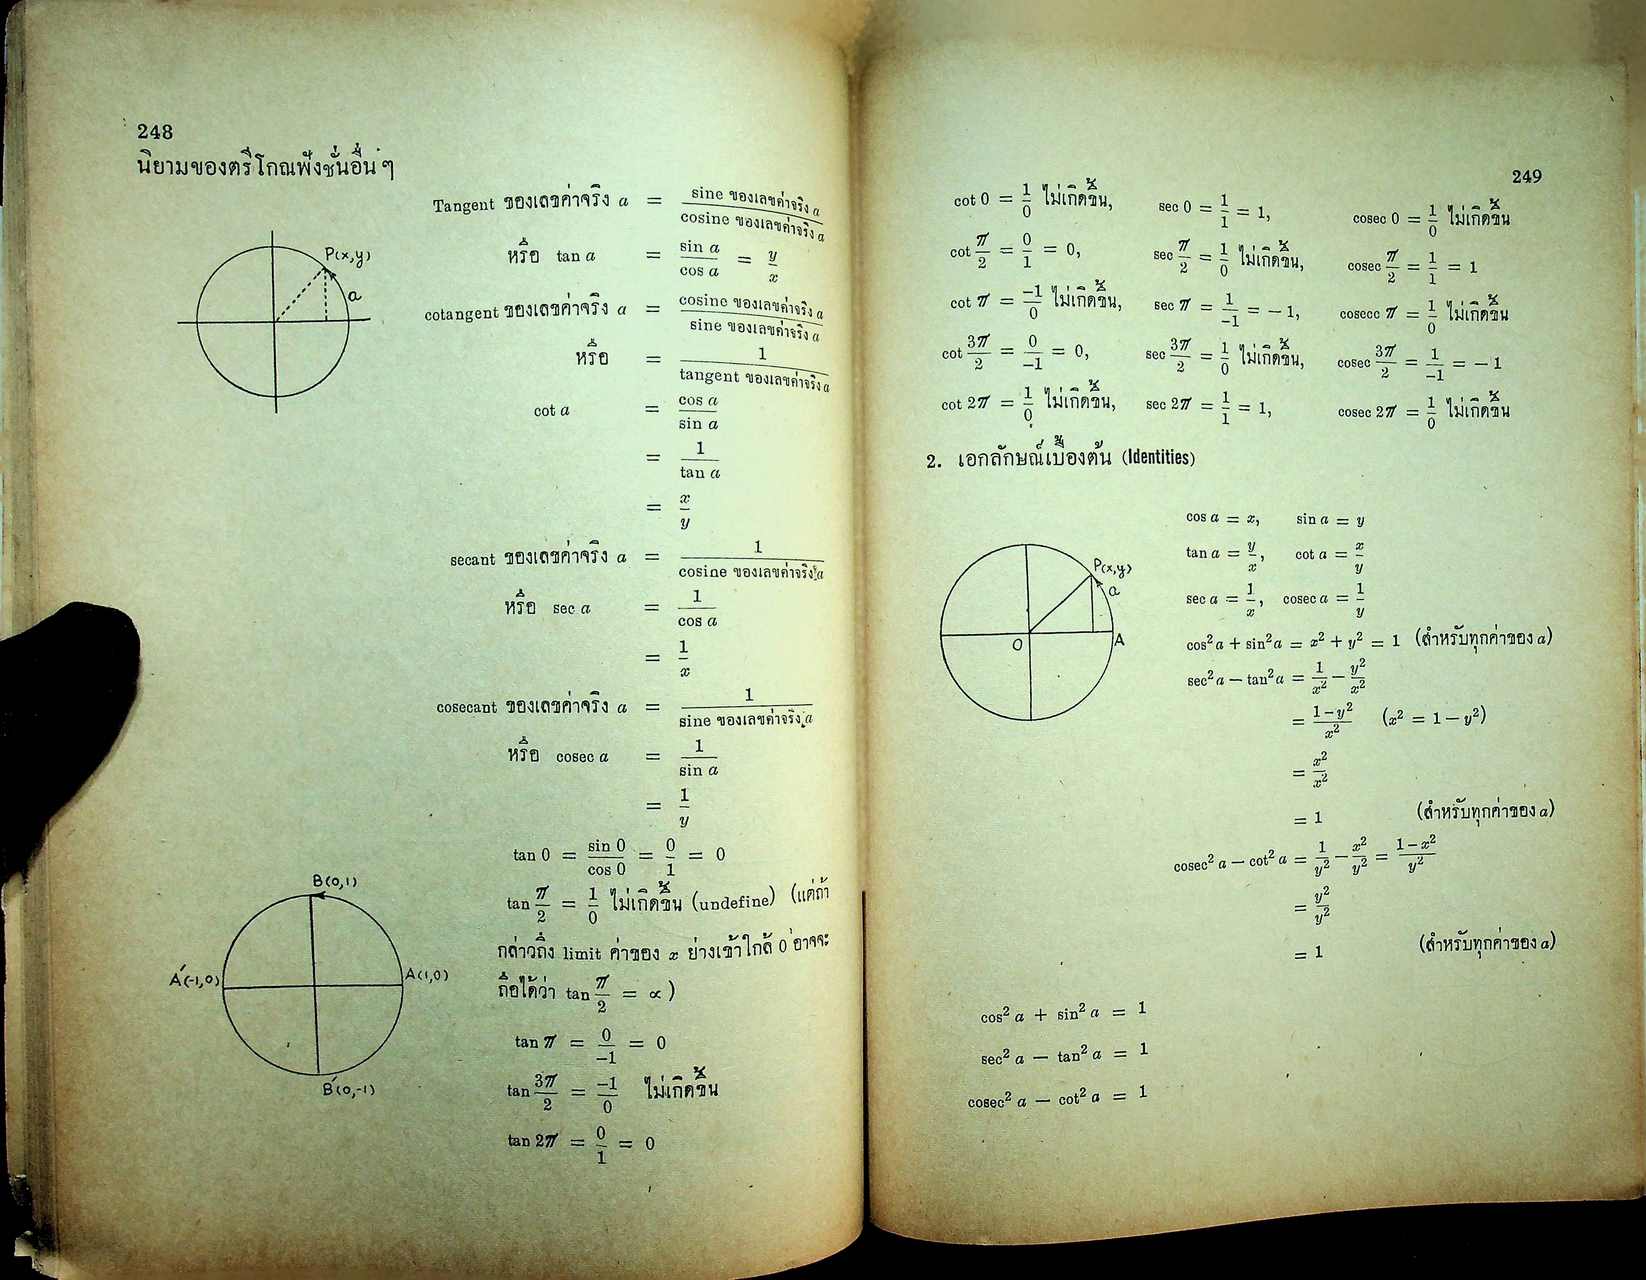 248
นิยามของตรีโกณฟังชั่นอื่น ๆ
Tangent ของเลขค่าจริง a = sine ของเลขค่าจริง a / cosine ของเลขค่าจริง a
P(x,y)
a
หรือ tan a = sin a / cos a = y / x
cotangent ของเลขค่าจริง a = cosine ของเลขค่าจริง a / sine ของเลขค่าจริง a
หรือ = 1 / tangent ของเลขค่าจริง a
cot a = cos a / sin a
= 1 / tan a
= x / y
secant ของเลขค่าจริง a = 1 / cosine ของเลขค่าจริง a
หรือ sec a = 1 / cos a
= 1 / x
cosecant ของเลขค่าจริง a = 1 / sine ของเลขค่าจริง a
หรือ cosec a = 1 / sin a
= 1 / y
tan 0 = sin 0 / cos 0 = 0 / 1 = 0
B(0,1)
A′(-1,0)
A(1,0)
B′(0,-1)
tan π/2 = 1/0 ไม่เกิดขึ้น (undefine) (แต่ถ้า
กล่าวถึง limit ค่าของ x ย่างเข้าใกล้ 0 อาจจะ
ถือได้ว่า tan π/2 = ∝ )
tan π = 0/−1 = 0
tan 3π/2 = −1/0 ไม่เกิดขึ้น
tan 2π = 0/1 = 0
249
cot 0 = 1/0 ไม่เกิดขึ้น, sec 0 = 1/1 = 1, cosec 0 = 1/0 ไม่เกิดขึ้น
cot π/2 = 0/1 = 0, sec π/2 = 1/0 ไม่เกิดขึ้น, cosec π/2 = 1/1 = 1
cot π = −1/0 ไม่เกิดขึ้น, sec π = 1/−1 = −1, cosecc π = 1/0 ไม่เกิดขึ้น
cot 3π/2 = 0/−1 = 0, sec 3π/2 = 1/0 ไม่เกิดขึ้น, cosec 3π/2 = 1/−1 = −1
cot 2π = 1/0 ไม่เกิดขึ้น, sec 2π = 1/1 = 1, cosec 2π = 1/0 ไม่เกิดขึ้น
2. เอกลักษณ์เบื้องต้น (Identities)
P(x,y)
a
O
A
cos a = x, sin a = y
tan a = y/x, cot a = x/y
sec a = 1/x, cosec a = 1/y
cos² a + sin² a = x² + y² = 1 (สำหรับทุกค่าของ a)
sec² a − tan² a = 1/x² − y²/x²
= 1−y²/x² (x² = 1−y²)
= x²/x²
= 1 (สำหรับทุกค่าของ a)
cosec² a − cot² a = 1/y² − x²/y² = 1−x²/y²
= y²/y²
= 1 (สำหรับทุกค่าของ a)
cos² a + sin² a = 1
sec² a − tan² a = 1
cosec² a − cot² a = 1